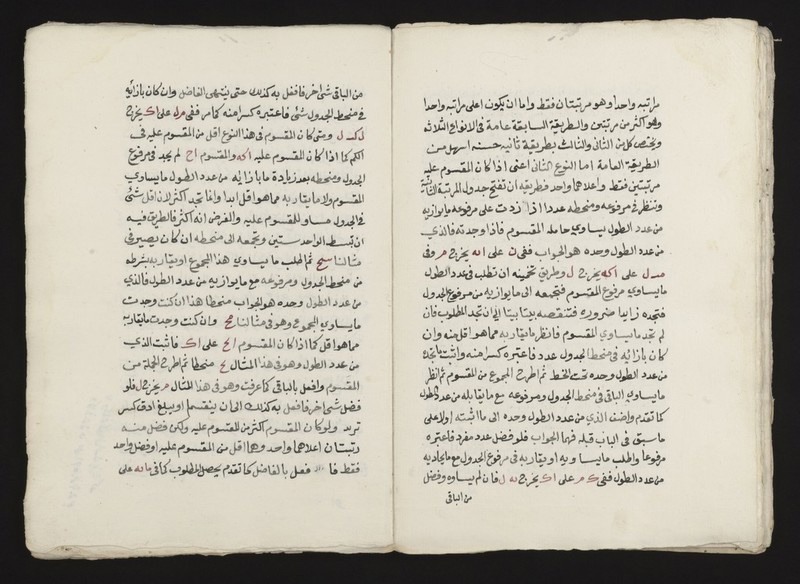 مراتبه واحدا وهو مرتبتان فقط واما ان يكون اعلى مراتبه واحدا
وهو اكثر من مرتبتين والطريقة السابقة عامة فى الانواع الثلاثه
ويختص كل من الثانى والثالث بطريقة ثانيه حسنه اسهل من
الطريقة العامة اما النوع الثانى اعنى اذا كان المقسوم عليه
مرتبتين فقط واعلاهما واحد فطريقه ان تفتح جدول المرتبة الثانية
وتنظر فى مرفوعه ومنحطه عددا اذا زدت على مرفوعه ما يوازيه
من عدد الطول يساوي حاصله المقسوم فاذا وجدته فالذي
من عدد الطول وحده هو الجواب ففى على يخرج وفى
على يخرج وطريق تخمينه ان تطلب فى عدد الطول
ما يساوي مرفوع المقسوم فتجمعه الى ما يوازيه من مرفوع الجدول
فتجده زايدا ضرورة فتنقصه بيتا بيتا الى ان تجد المطلوب فان
لم تجد ما يساوي المقسوم فانظر ما يقاربه مما هو اقل منه وان
كان بازائه فى منحط الجدول عدد فاعتبره كسرا منه واثبت ما تجده
من عدد الطول وحده تحت الخط ثم اطرح المجموع من المقسوم ثم انظر
ما يساوي الباقى فى منحط الجدول ومرفوعه مع ما يقابله من عدد الطول
كما تقدم واضف الذي من عدد الطول وحده الى ما اثبته اولا على
ما سبق فى الباب قبله فهما الجواب فلو فضل عدد مفرد فاعتبره
مرفوعا واطلب ما يساويه او يقاربه فى مرفوع الجدول مع ما يحاذيه
من عدد الطول ففى على يخرج فان لم يساوه وفضل
من الباقى
من الباقى شئ اخر فافعل به كذلك حتى ينتهى الفاضل وان كان بازائه
فى منحط الجدول شئ فاعتبره كسرا منه كما مر ففى على يخرج
ومتى كان المقسوم فى هذا النوع اقل من المقسوم عليه فى
الكم كما اذا كان المقسوم عليه والمقسوم لم يجد فى مرفوع
الجدول ومنحطه بعد زيادة ما بازائه من عدد الطول ما يساوي
المقسوم ولا ما يقاربه مما هو اقل ابدا وانما تجد اكثر لان اقل شئ
فى الجدول مساو للمقسوم عليه والفرض انه اكثر فالطريق فيه
ان تبسط الواحد ستين وتجمعه الى منحطه ان كان يصير فى
مثالنا ثم اطلب ما يساوي هذا المجموع او يقاربه بشرطه
من منحط الجدول ومرفوعه مع ما يوازيه من عدد الطول فالذي
من عدد الطول وحده هو الجواب منحطا هذا ان كنت وجدت
ما يساوي المجموع وهو فى مثالنا وان كنت وجدت ما يقاربه
مما هو اقل كما اذا كان المقسوم على فاثبت الذي
من عدد الطول وهو فى هذا المثال منحطا ثم اطرح الجملة من
المقسوم وافعل بالباقى كما عرفت وهو فى هذا المثال يخرج فلو
فضل شئ اخر فافعل به كذلك الى ان ينقسم او يبلغ ادق كسر
تريد ولو كان المقسوم اكثر من المقسوم عليه ولكن فضل منه
رتبتان اعلاهما واحد وهما اقل من المقسوم عليه او فضل واحد
فقط فافعل بالفاضل كما تقدم يحصل المطلوب كما فى على